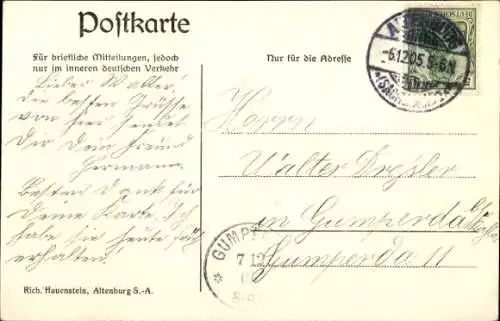 Postkarte
Für briefliche Mitteilungen, jedoch
nur im inneren deutschen Verkehr
Nur für die Adresse
Lieber Walter!
Die besten Grüsse
von hier sendet
Dir Dein Freund
Hermann.
Besten Dank für
Deine Karte. Ich
habe sie heute früh
erhalten!
Herrn
Walter Dressler
in Gumperda
Gumperda 11
-6.12.05.5-6N
GUMP
7 12
Rich. Hauenstein, Altenburg S.-A.